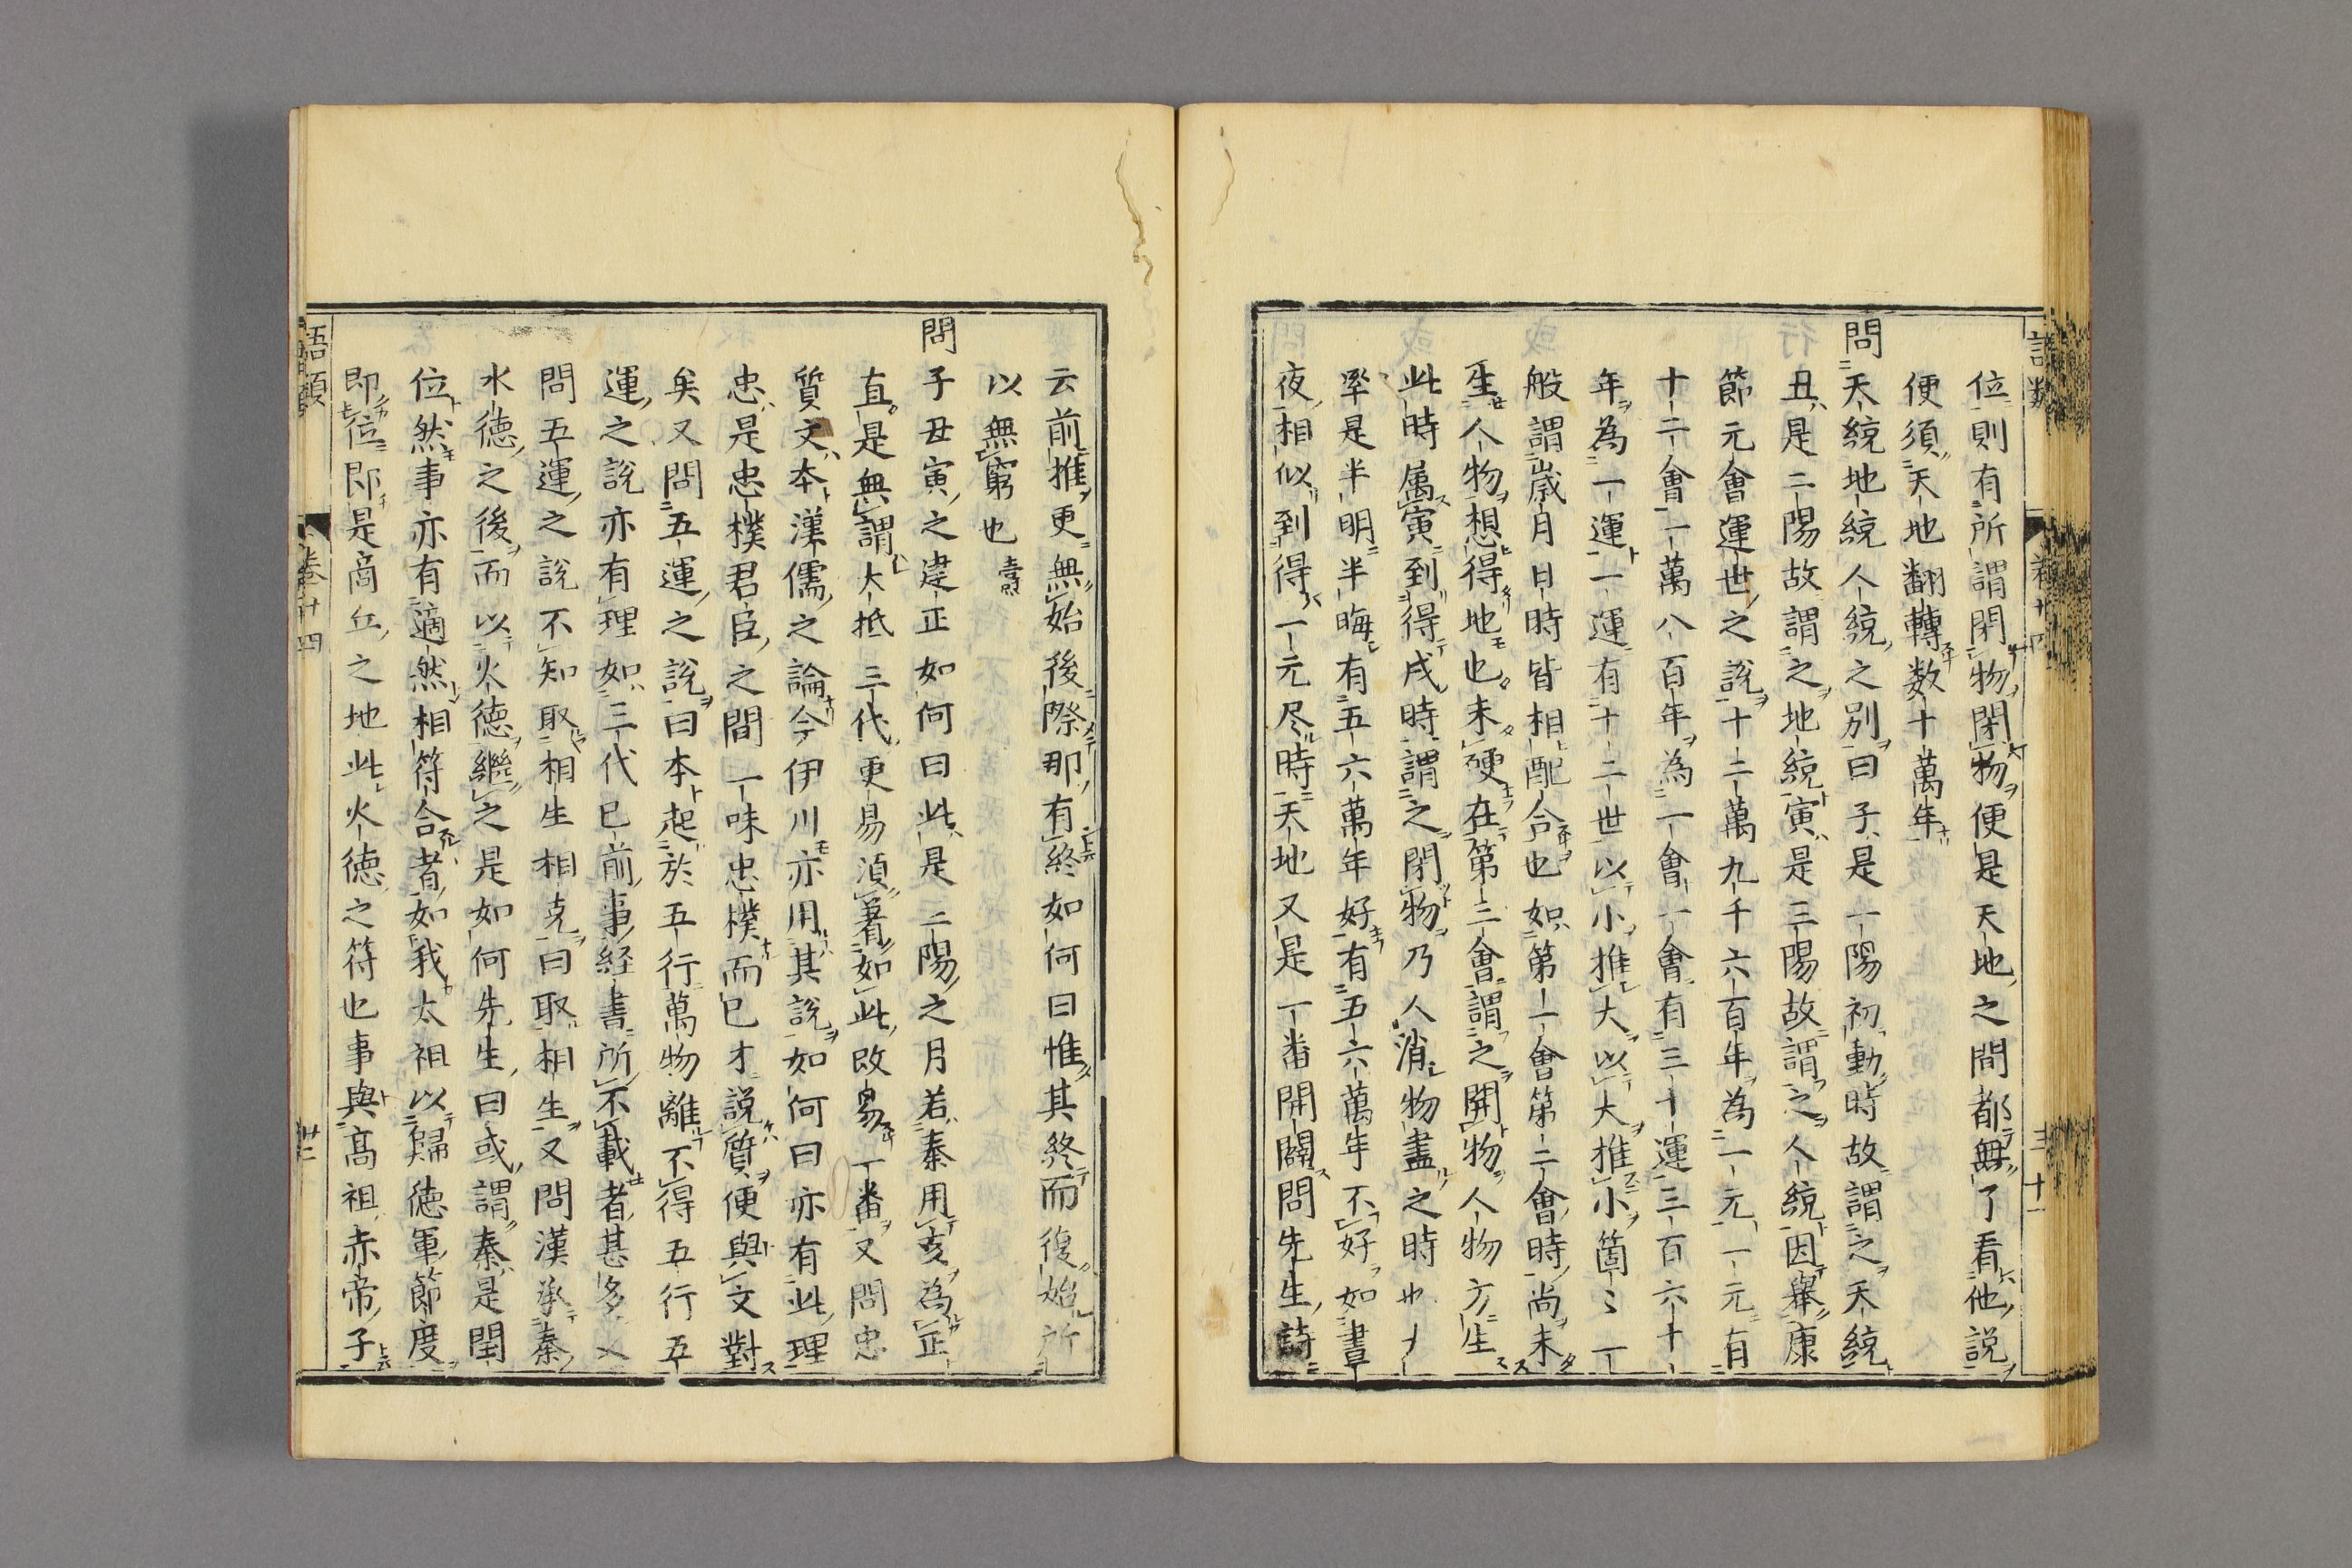 位則有所謂閉物閉物便是天地之間都無了看他説
便須天地翻轉数十萬年
問天統地統人統之別曰子是一陽初動時故謂之天統
丑是二陽故謂之地統寅是三陽故謂之人統因舉康
節元會運世之説十二萬九千六百年為一元一元有
十二會一萬八百年為一會一會有三十運三百六十
年為一運一運有十二世以小推大以大推小箇〻一
般謂歳月日時皆相配合也如第一會第二會時尚未
生人物想得地也未硬在第三會謂之開物人物方生
此時属寅到得戌時謂之閉物乃人消物盡之時也大
率是半明半晦有五六萬年好有五六萬年不好如晝
夜相似到得一元尽時天地又是一番開闢問先生詩
云前推更無始後際那有終如何曰惟其終而復始所
以無窮也 燾
問子丑寅之建正如何曰此是三陽之月若秦用亥為正
直是無謂大抵三代更易湏著如此改易一番又問忠
質文本漢儒之論今伊川亦用其説如何曰亦有此理
忠是忠樸君臣之間一味忠樸而已才説質便與文對
矣又問五運之説曰本起於五行萬物離不得五行五
運之説亦有理如三代已前事経書所不載者甚多又
問五運之説不知取相生相克曰取相生又問漢承秦
水徳之後而以火徳繼之是如何先生曰或謂秦是閏
位然事亦有適然相符合者如我太祖以歸徳軍節度
即位即是商丘之地此火徳之符也事與高祖赤帝子
語類 卷廿四